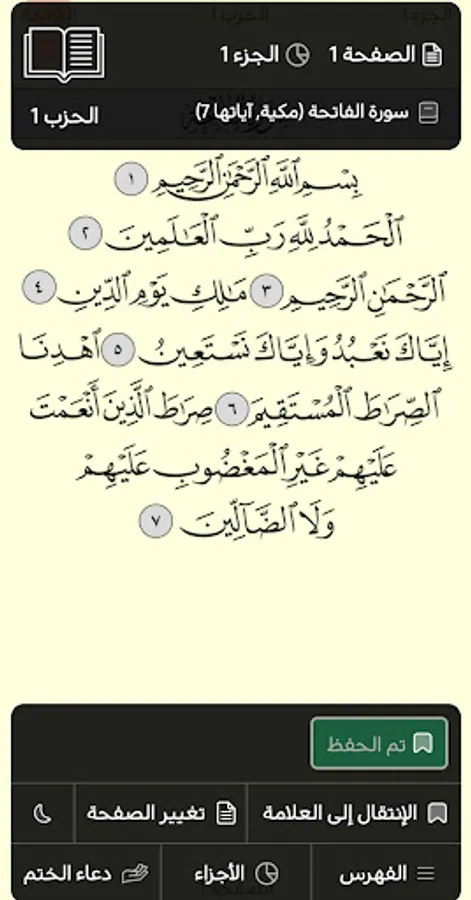 الصفحة 1 الجزء 1
سورة الفاتحة (مكية, آياتها 7) الحزب 1
بِسْمِ ٱللَّهِ ٱلرَّحْمَٰنِ ٱلرَّحِيمِ ١
ٱلْحَمْدُ لِلَّهِ رَبِّ ٱلْعَٰلَمِينَ ٢
ٱلرَّحْمَٰنِ ٱلرَّحِيمِ ٣ مَٰلِكِ يَوْمِ ٱلدِّينِ ٤
إِيَّاكَ نَعْبُدُ وَإِيَّاكَ نَسْتَعِينُ ٥ ٱهْدِنَا
ٱلصِّرَٰطَ ٱلْمُسْتَقِيمَ ٦ صِرَٰطَ ٱلَّذِينَ أَنْعَمْتَ
عَلَيْهِمْ غَيْرِ ٱلْمَغْضُوبِ عَلَيْهِمْ
وَلَا ٱلضَّآلِّينَ ٧
تم الحفظ
الإنتقال إلى العلامة تغيير الصفحة
الفهرس الأجزاء دعاء الختم